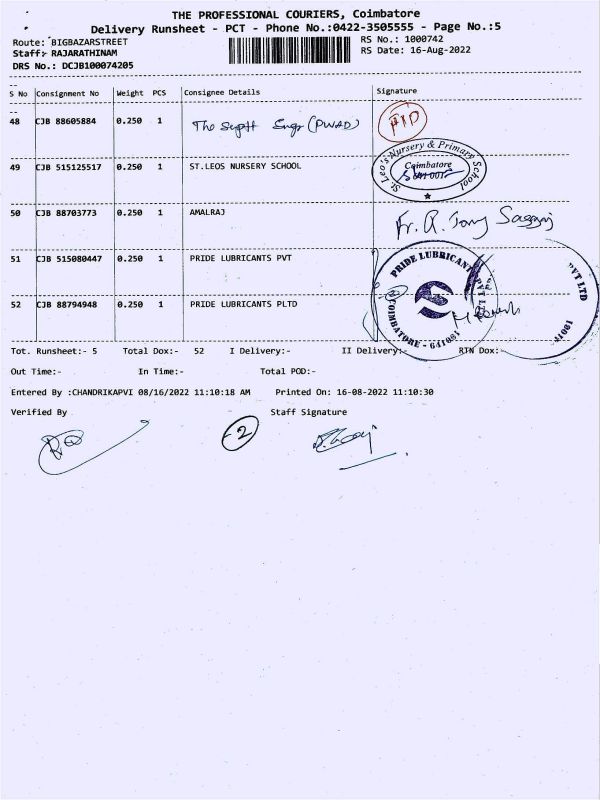 THE PROFESSIONAL COURIERS, Coimbatore
Delivery Runsheet - PCT - Phone No.:0422-3505555 - Page No.:5
Route: BIGBAZARSTREET
RS No.: 1000742
Staff:- RAJARATHINAM
RS Date: 16-Aug-2022
DRS No.: DCJB100074205
S No Consignment No Weight PCS Consignee Details Signature
48 CJB 88605884 0.250 1 The Suptt Engr (PWAD)
49 CJB 515125517 0.250 1 ST.LEOS NURSERY SCHOOL
St. Leo's Nursery & Primary School
Coimbatore
50 CJB 88703773 0.250 1 AMALRAJ Fr. A. Tony
51 CJB 515080447 0.250 1 PRIDE LUBRICANTS PVT
PRIDE LUBRICANTS PVT LTD
COIMBATORE - 641001
PVT LTD
641001
52 CJB 88794948 0.250 1 PRIDE LUBRICANTS PLTD
Tot. Runsheet:- 5 Total Dox:- 52 I Delivery:- II Delivery:- RTN Dox:-
Out Time:- In Time:- Total POD:-
Entered By :CHANDRIKAPVI 08/16/2022 11:10:18 AM Printed On: 16-08-2022 11:10:30
Verified By Staff Signature
2